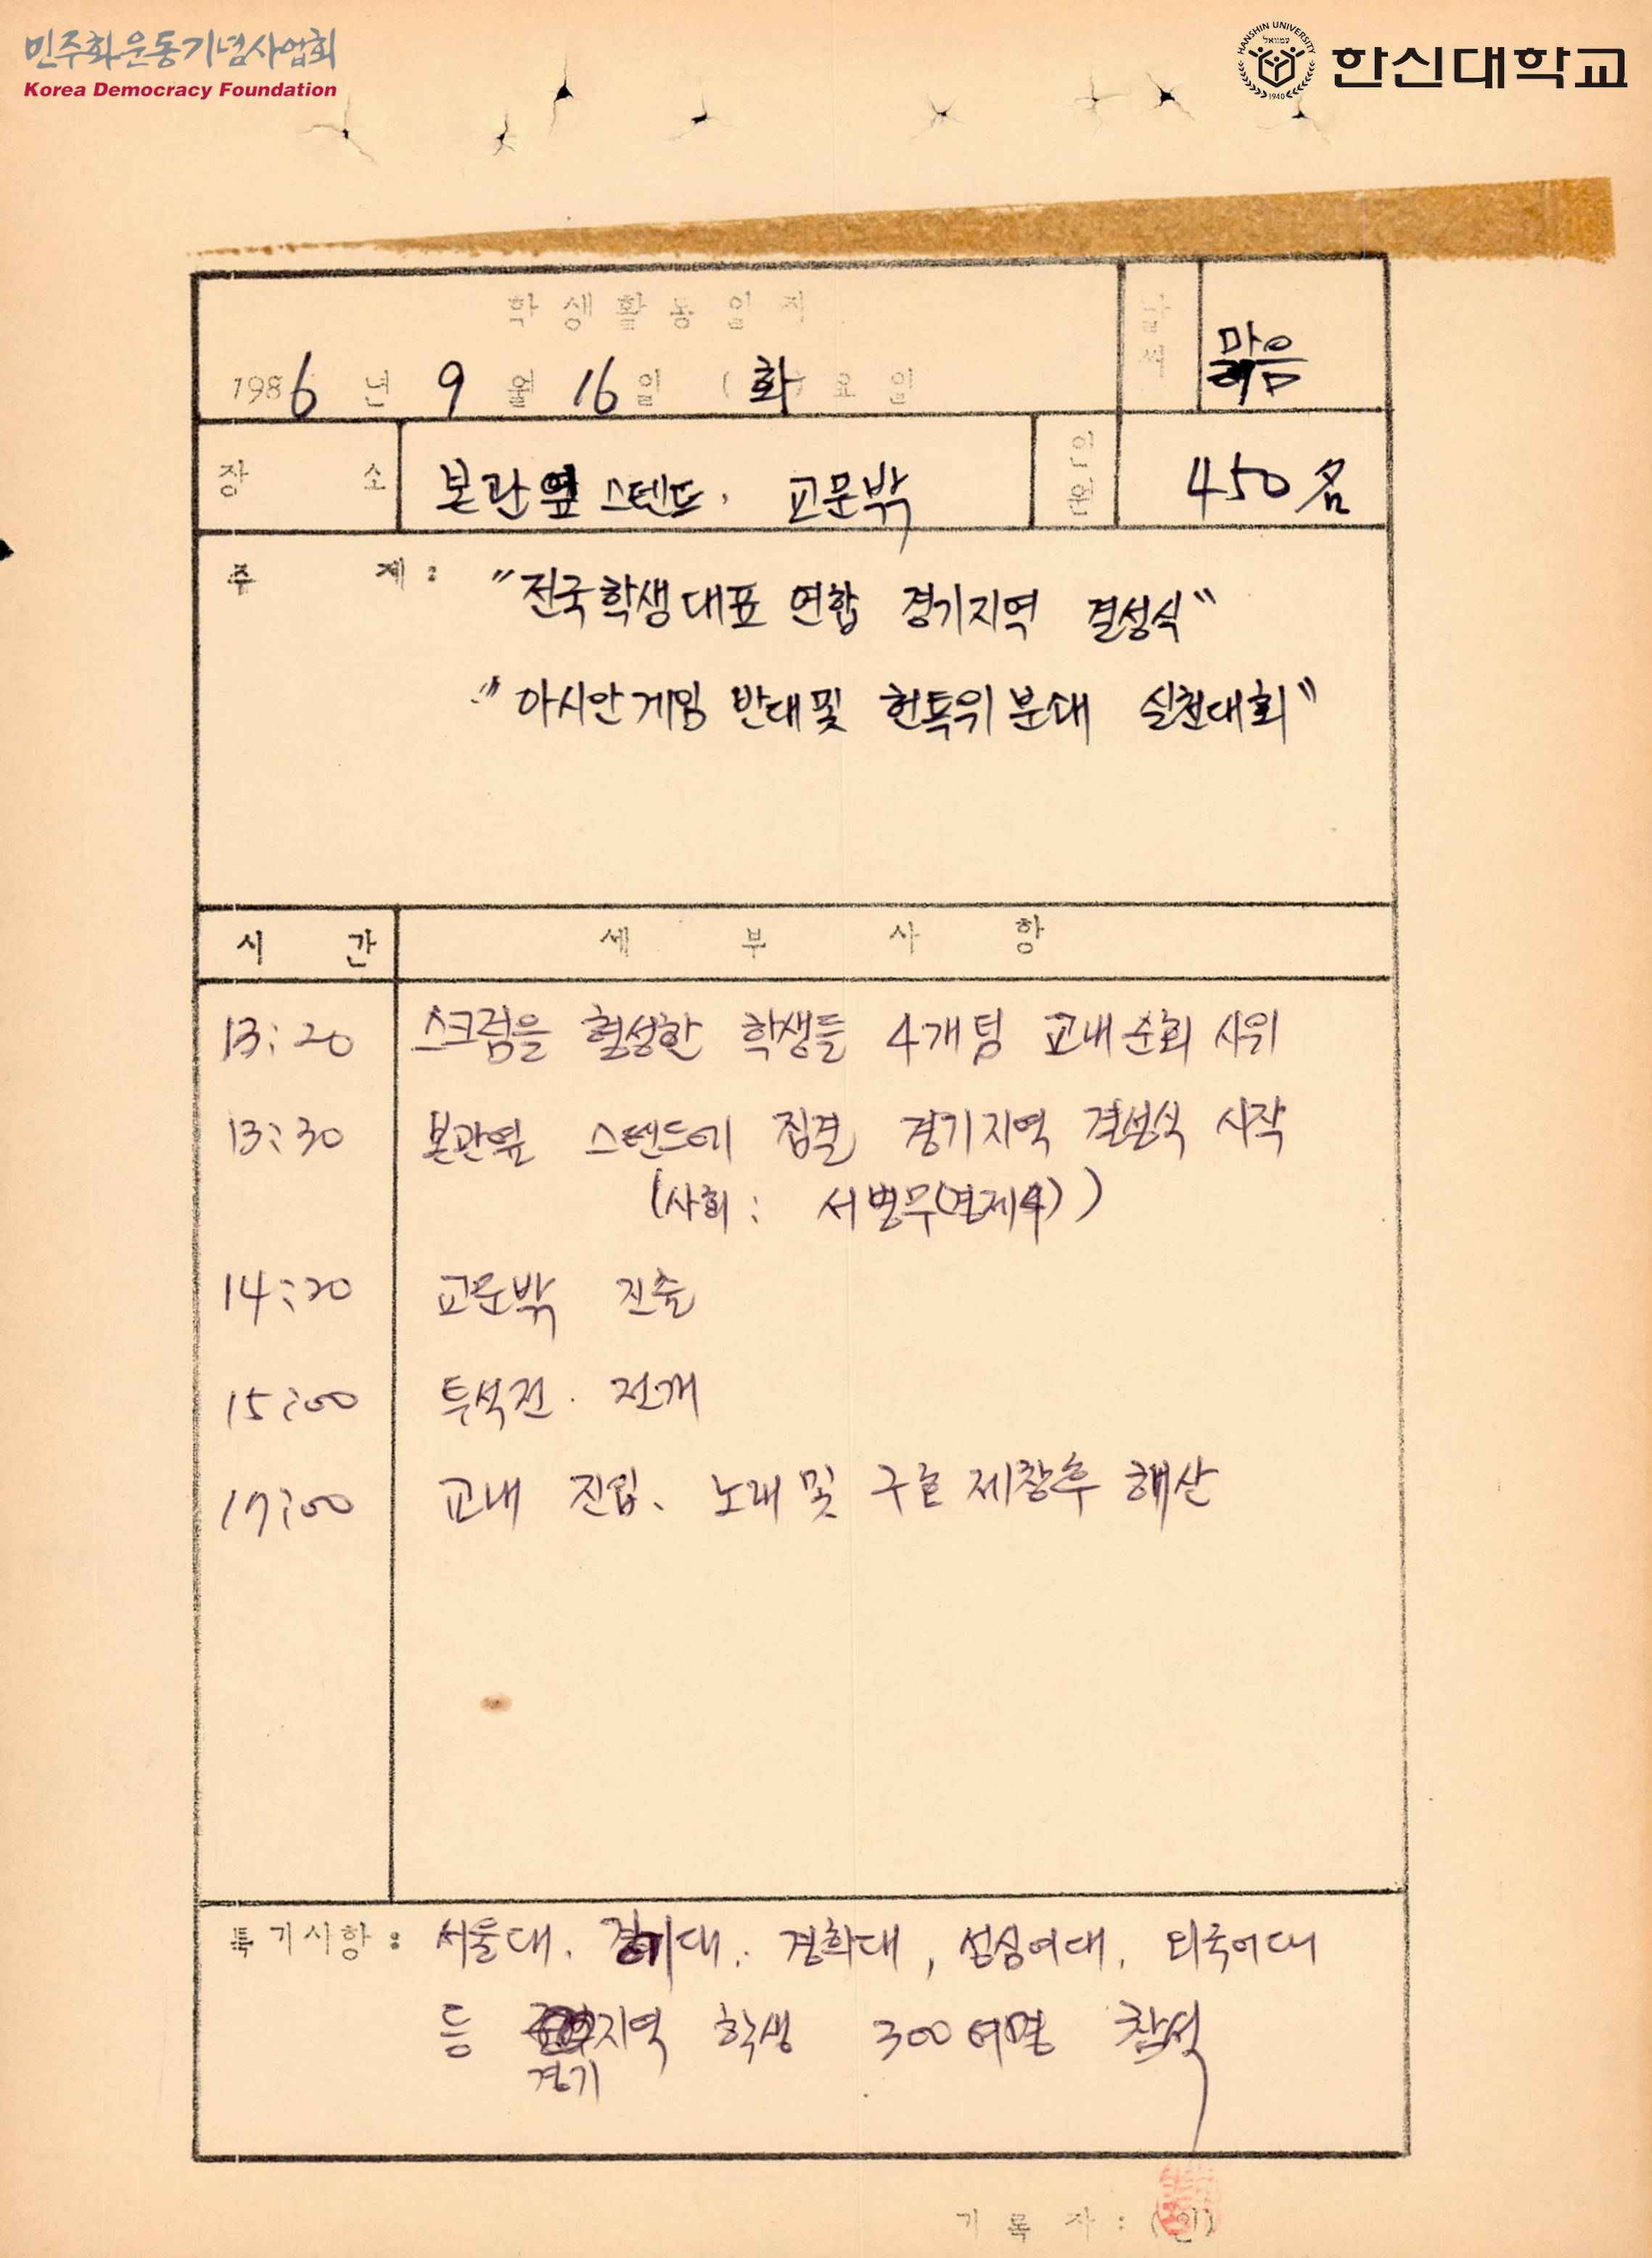 민주화운동기념사업회
Korea Democracy Foundation
HANSHIN UNIVERSITY
1940
한신대학교
학생활동일지
날씨
맑음
1986년 9월 16일 (화)요일
장소 본관옆 스텐드. 교문밖
인원 450名
주제: "전국학생대표 연합 경기지역 결성식"
"아시안게임 반대및 헌특위분쇄 실천대회"
시간 세부사항
13:20 스크럼을 형성한 학생들 4개텀 교내순회 시위
13:30 본관옆 스텐드에 집결 경기지역 결성식 시작
(사회: 서병무(경제4))
14:20 교문밖 진출
15:00 투석전. 전개
17:00 교내 진입、노래및 구호 제창후 해산
특기사항: 서울대. 경기대. 경희대, 성심여대. 외국어대
등 지역 학생 300여명 참석
경기
기록자: (인)